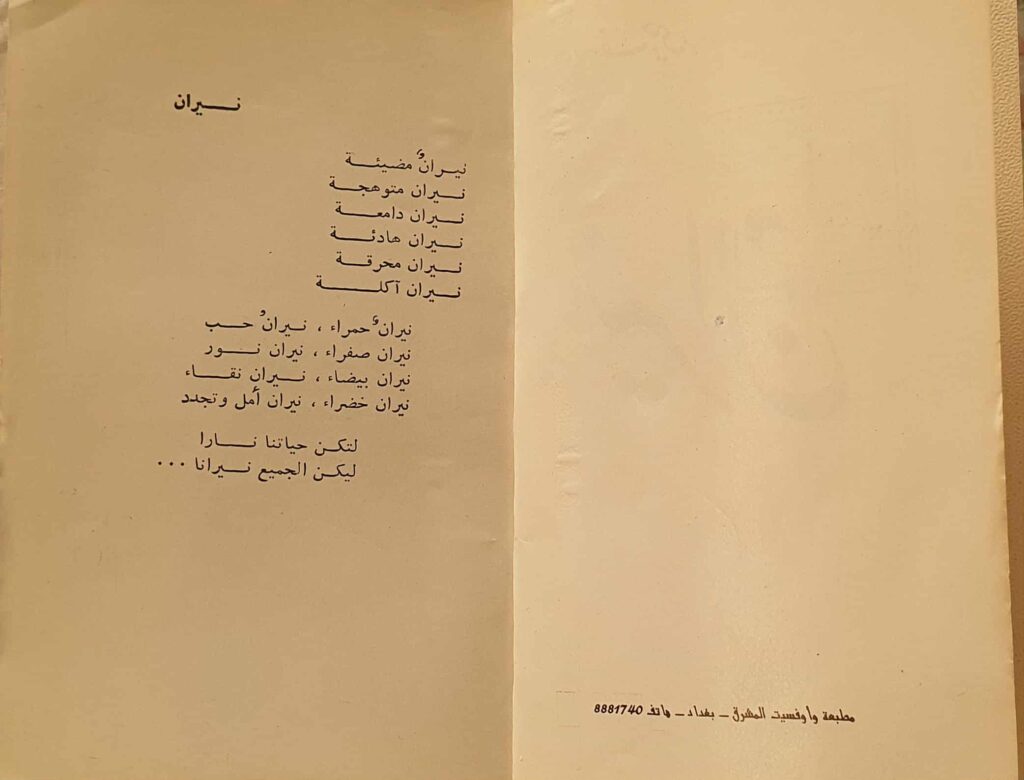 نيران
نيرانٌ مضيئة
نيران متوهجة
نيران دامعة
نيران هادئة
نيران محرقة
نيران آكلة
نيرانٌ حمراء ، نيرانُ حب
نيران صفراء ، نيران نور
نيران بيضاء ، نيران نقاء
نيران خضراء ، نيران أمل وتجدد
لتكن حياتنا نارا
ليكن الجميع نيرانا ...
مطبعة وأوفسيت المشرق - بغداد - هاتف 8881740